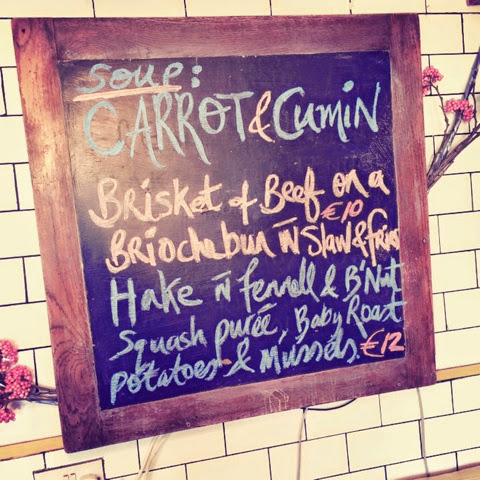 Soup:
CARROT & Cumin
Brisket of Beef on a
€10
Brioche bun w̄ Slaw & fries
Hake w̄ fennell & B'Nut
Squash purée, Baby Roast
potatoes & Mussels. €12